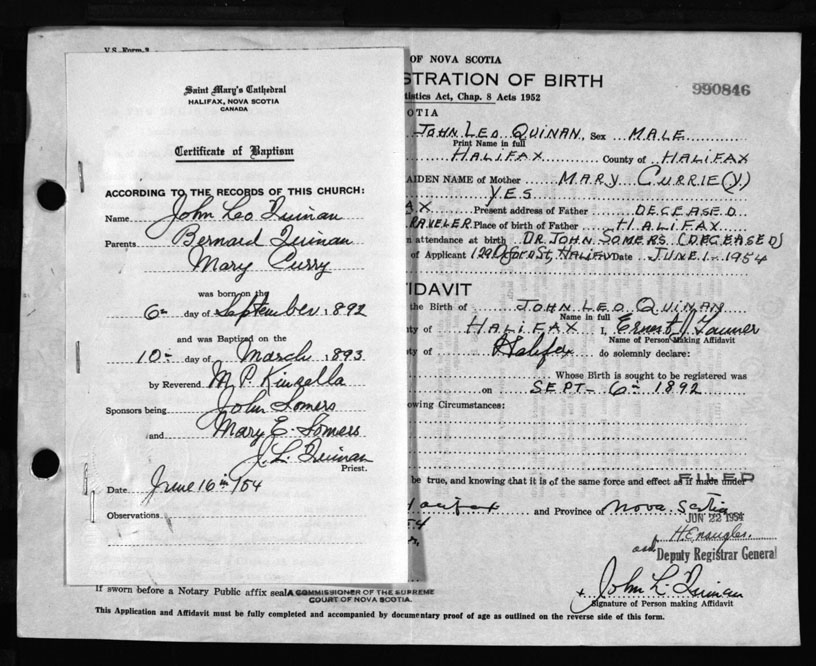 V.S. Form 3
Saint Mary's Cathedral
HALIFAX, NOVA SCOTIA
CANADA
Certificate of Baptism
ACCORDING TO THE RECORDS OF THIS CHURCH:
Name John Leo Quinan
Parents Bernard Quinan
Mary Curry
was born on the
6th day of September 1892
and was Baptized on the
10th day of March 1893
by Reverend M. P. Kinsella
Sponsors being John Somers
and Mary E. Somers
J. L. Quinan
Priest.
Date June 16th /54
Observations
OF NOVA SCOTIA
STRATION OF BIRTH
tistics Act, Chap. 8 Acts 1952
990846
OTIA
JOHN LEO QUINAN, Sex MALE
Print Name in full
HALIFAX County of HALIFAX
AIDEN NAME of Mother MARY CURRIE (Y)
YES
AX Present address of Father DECEASED
RAVELER Place of birth of Father HALIFAX
n attendance at birth DR. JOHN SOMERS (DECEASED)
of Applicant 129 Oxford St, HALIFAX Date JUNE 1 - 1954
FIDAVIT
the Birth of JOHN LEO QUINAN
Name in full
ty of HALIFAX I, Ernest
Name of Person Making Affidavit
ty of Halifax do solemnly declare:
Whose Birth is sought to be registered was
on SEPT - 6th 1892
owing Circumstances:
be true, and knowing that it is of the same force and effect as if made under
FILED
and Province of Nova Scotia
54
JUN 22 1954
Deputy Registrar General
John L. Quinan
Signature of Person making Affidavit
If sworn before a Notary Public affix seal A COMMISSIONER OF THE SUPREME
COURT OF NOVA SCOTIA.
This Application and Affidavit must be fully completed and accompanied by documentary proof of age as outlined on the reverse side of this form.